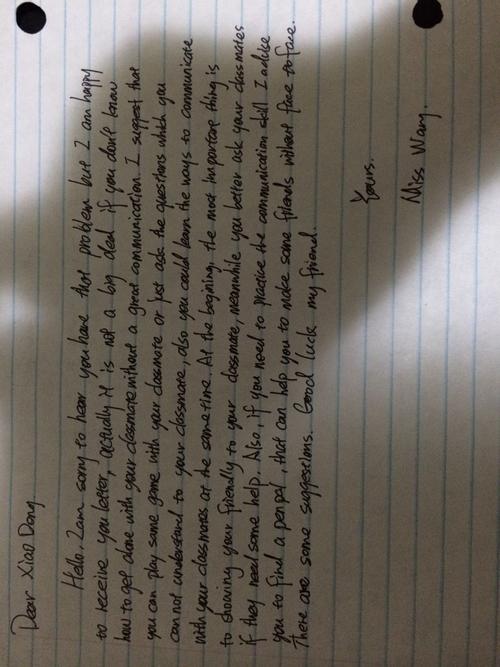 Dear Xiao Dong
Hello, I am sorry to hear you have that problem but I am happy
to receive you letter, actually it is not a big deal if you don't know
how to get done with your classmate without a great communication. I suggest that
you can play some game with your classmate or just ask the questions which you
can not understand to your classmate, also you could learn the ways to communicate
with your classmates at the same time. At the begining, the most important thing is
to showing your friendly to your classmate, meanwhile you better ask your classmates
if they need some help. Also, if you need to practice the communication skill I advise
you to find a pen pal, that can help you to make some friends without face to face.
There are some suggestions. Good luck my friend.
Yours.
Miss Wang.